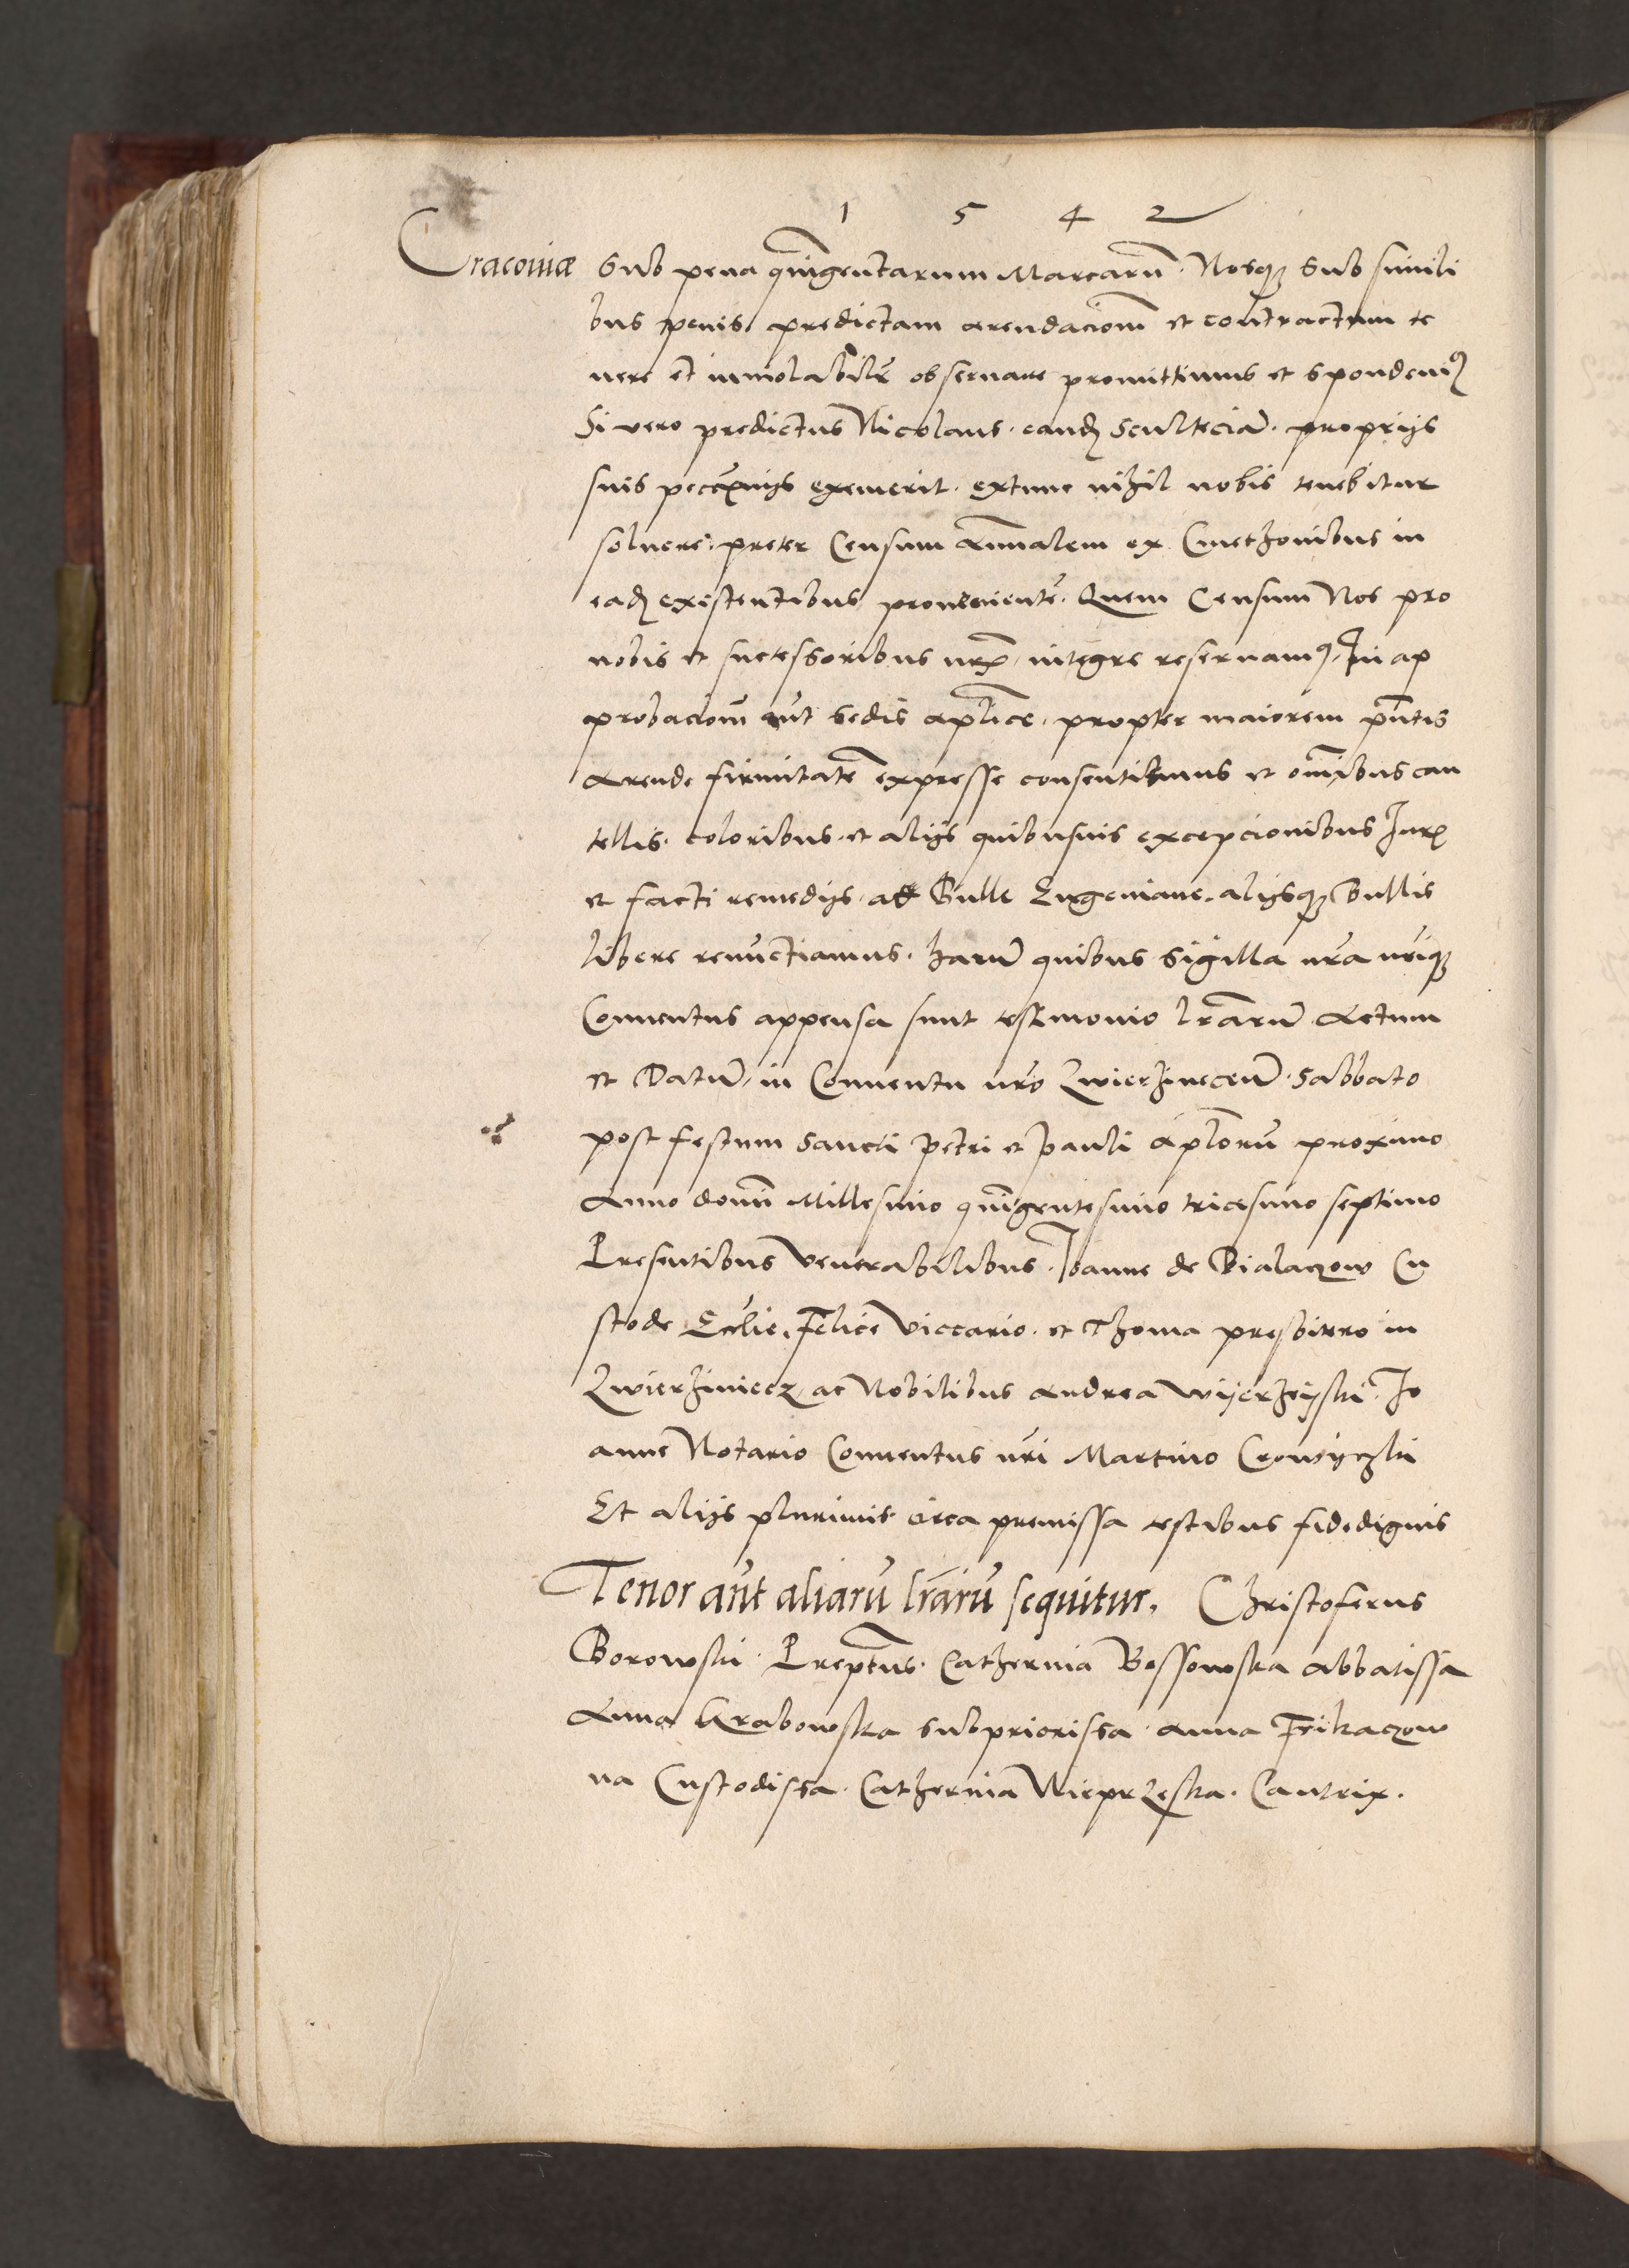 1 5 4 2
Cracoviæ
Sub pena quĩgentarum Marcarũ. Nosq; sub simili
bus penis predictam arendacioñ et contractum te
nere et inviolabilr̃ observare promittimus et spondemꝰ
Si vero predictus Nicolaus. eandẽ sculteciã. proprijs
suis peccunijs exemerit. extunc nihil nobis tenebitur
solvere. preter Censum Annualem ex Cmethonibus in
eadẽ existentibus provenientẽ. Quem Censum Nos pro
nobis et successoribus nr̃is integre reservamꝰ, In ap
probacioñ aũt sedis ap̃lice. propter maiorem pñtis
Arende firmitatẽ expresse consentimus et om̃ibus cau
tellis. coloribus. et alijs quibusuis excepcionibus Juris
et facti remedijs. ac Bulle Eugeniane. alijsq; bullis
libere renũctiamus. harũ quibus sigilla nr̃a nr̃iq;
Conventus appensa sunt testimonio lr̃arũ Actum
et Datũ, in Conventu nr̃o Zwierzinecen̄. Sabbato
post festum sancti Petri et Pauli Ap̃lorũ proximo
Anno domñi Millesimo quĩgentesimo tricesimo septimo
Presentibus Venerabilibus. Joanne de Bialaczow Cu
stode Ecc̃lie. Felice Viccario. et Thoma presbitero in
Zwierziniecz ac Nobilibus Andrea Wijerzeijski. Jo
anne Notario Conventus nr̃i Martino Crowijczki
Et alijs plurimis circa premissa testibus fidedignis
Tenor aũt aliarũ lr̃arũ sequitur. Christoferus
Borowski. Prep̃tus. Catherina Bossowska Abbatissa
Anna Grabowska Subpriorissa. Anna Frikaczow
na Custodissa. Catherina Wieprzeska. Cantrix.